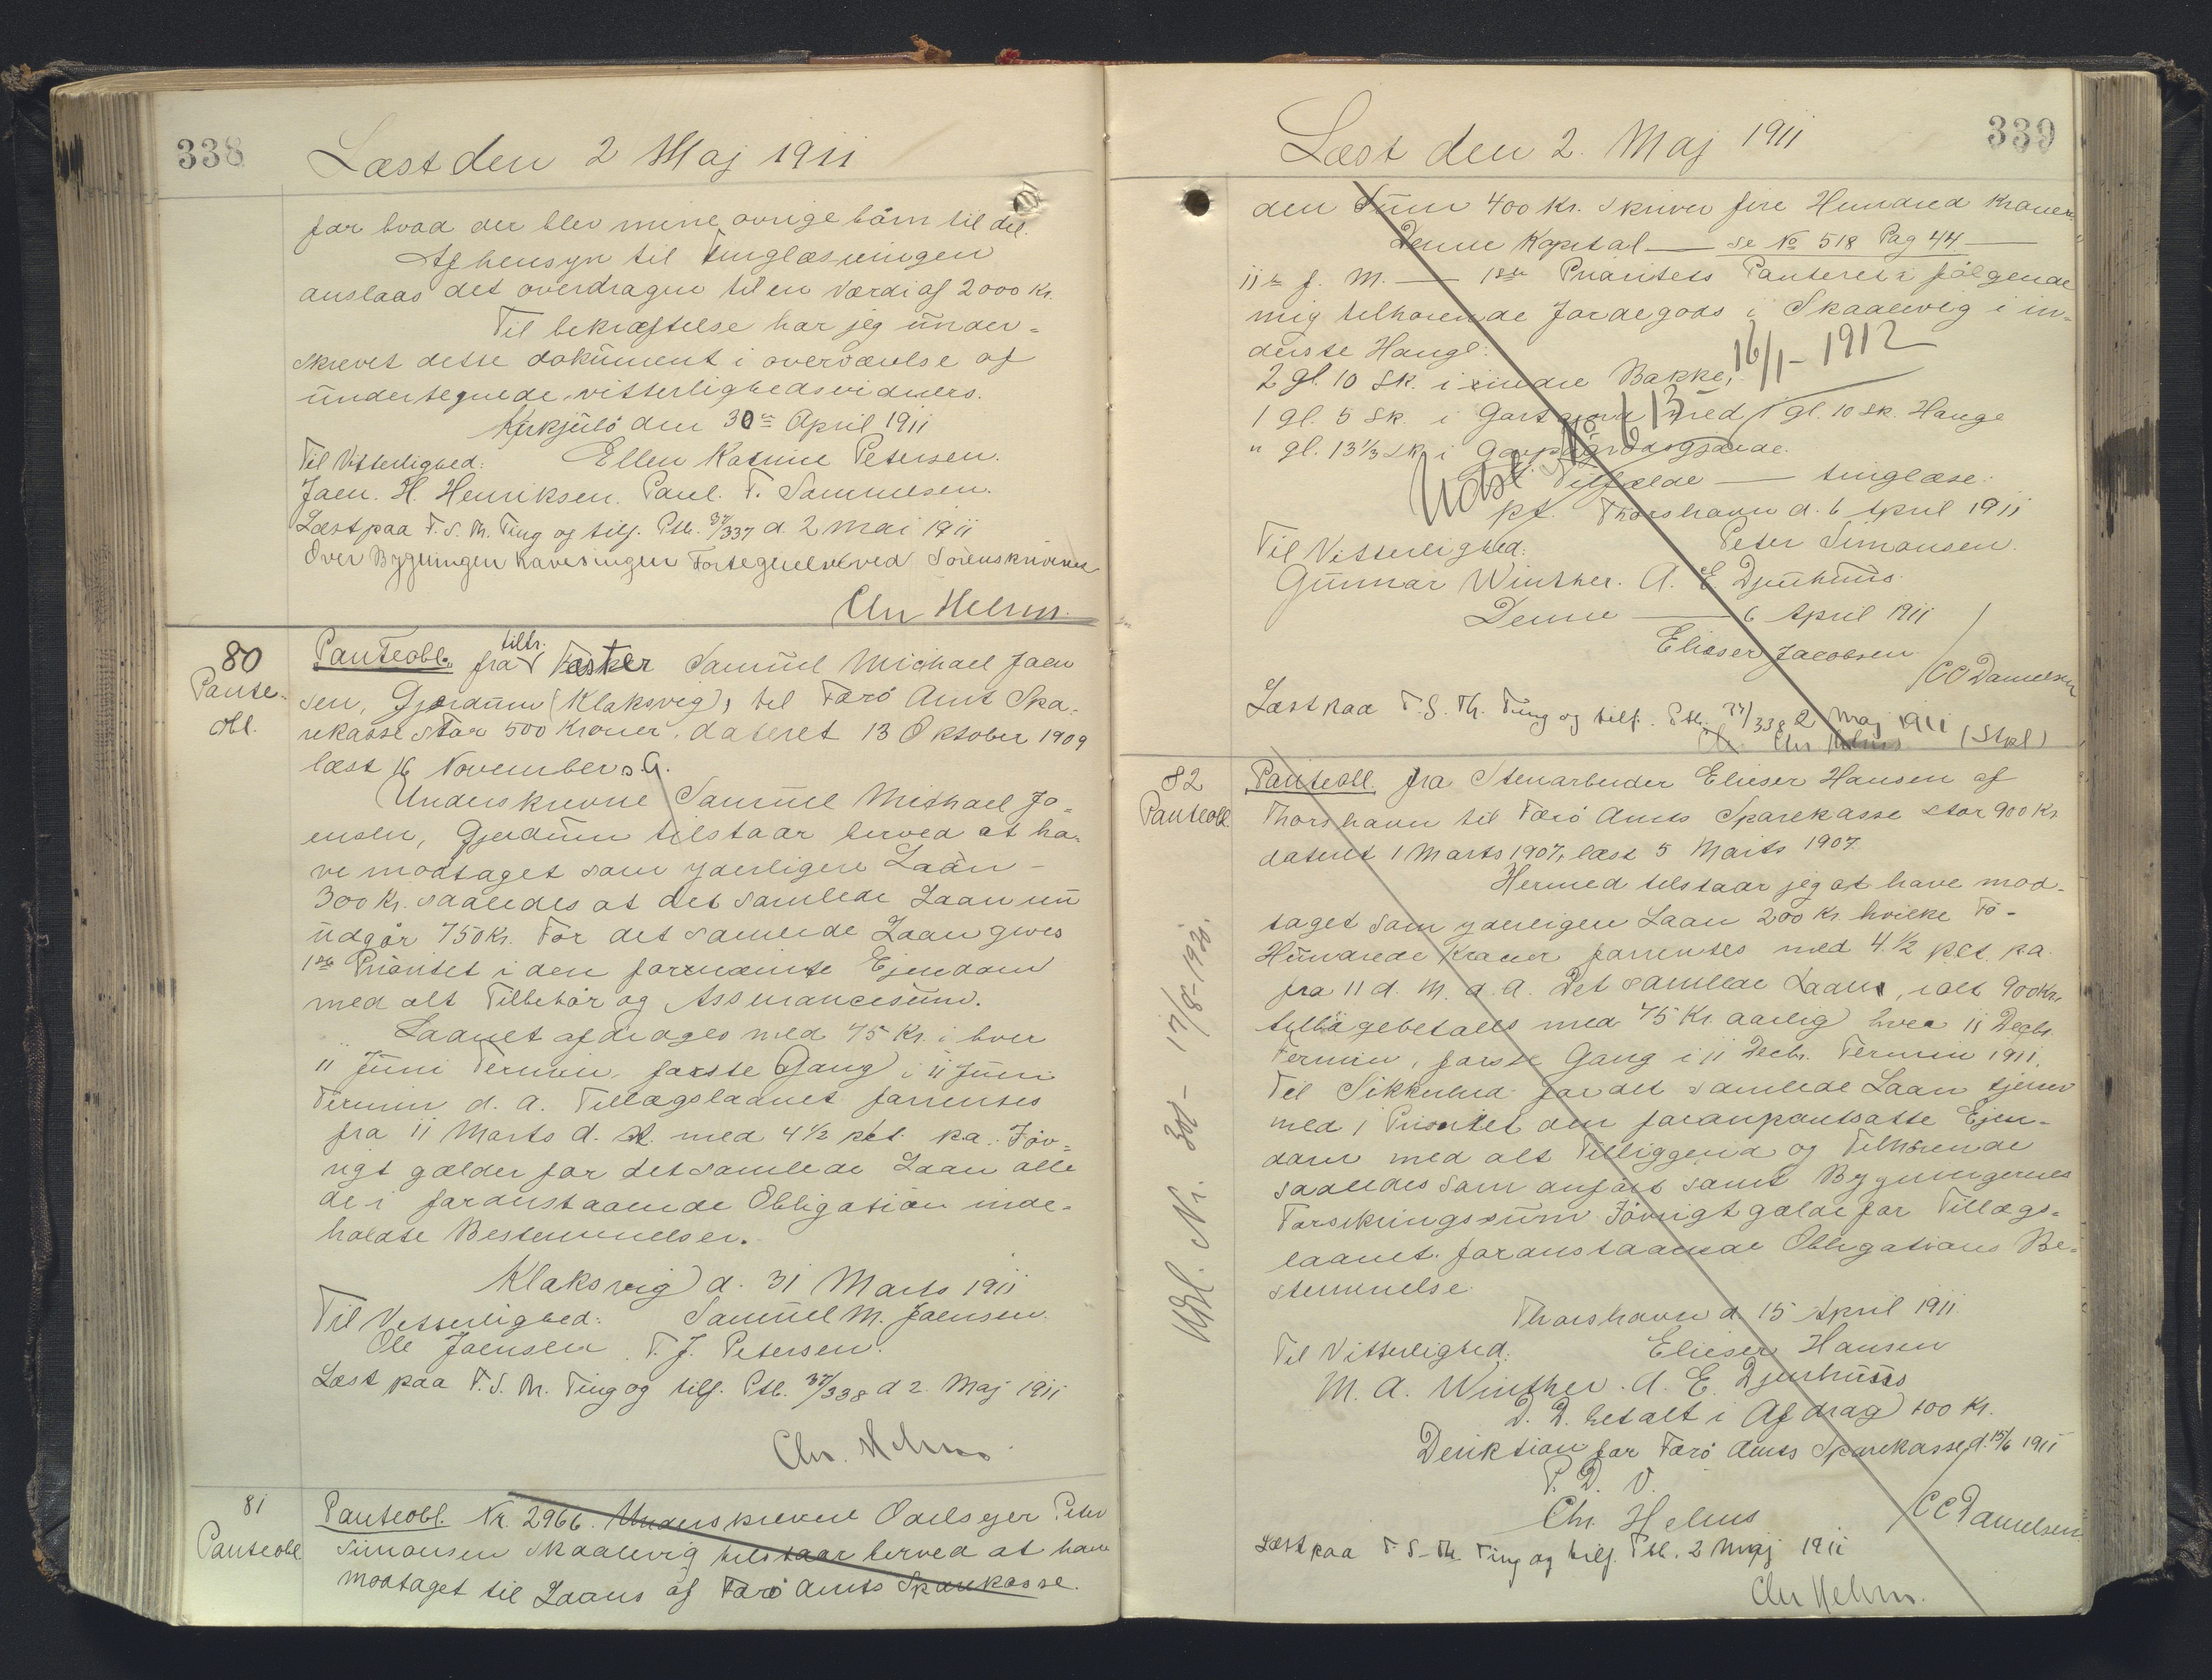 338
Læst den 2 Maj 1911
for hvad der blev mine øvrige børn til del.
Af hensyn til Tinglæsningen
anslaas det overdragne til en Værdi af 2000 Kr.
Til bekræftelse har jeg under-
skrevet dette dokument i overværelse af
undertegnede vitterlighedsvidners.
Kirkjubö den 30te April 1911
Til Vitterlighed: Ellen Katrine Petersen.
Joen. H. Henriksen. Poul. F. Samuelsen.
Læst paa T. S. Th. Ting og tilf. Ptb. 37/337 d. 2 Mai 1911
Over Bygningen haves ingen Fortegnelse ved Sorenskriveren
Chr Helms.
80
Pante-
obl.
Panteobl. fra tiltr. Fæster Samuel Michael Joen
sen, Gjerdum (Klaksvig), til Færö Amt Spa-
rekasse stor 500 Kroner, dateret 13 Oktober 1909
læst 16 November s. A.
Underskrevne Samuel Michael Jo-
ensen, Gjerdum tilstaar herved at ha-
ve modtaget som yderligere Laan
300 Kr. saaledes at det samlede Laan nu
udgör 750 Kr. For det samlede Laan gives
1ste Prioritet i den fornævnte Ejendom
med alt Tilbehör og Assurancesum.
Laanet afdrages med 75 Kr. i hver
11 Juni Termin, förste Gang i 11 Juni
Termin d. A. Tillægslaanet forrentes
fra 11 Marts d. A. med 4 1/2 pct. p.a. Jöv-
rigt gælder for det samlede Laan alle
de i foranstaaende Obligation inde-
holdte Bestemmelser.
Klaksvig d. 31 Marts 1911
Til Vitterlighed: Samuel M. Joensen.
Ole Joensen T. J. Petersen.
Læst paa T. S. Th. Ting og tilf. Ptb. 37/338 d 2. Maj 1911
Chr. Helms
81
Panteobl
Panteobl. Nr. 2966. Underskrevne Odelsejer Peter
Simonsen Skaalevig tilstaar herved at have
modtaget til Laans af Færö Amts Sparekasse.
339
Læst den 2. Maj 1911
den Sum 400 Kr. skriver fire Hundred Kroner.
Denne Kapital — se No 518 Pag 44 —
11te f. M. — 1ste Prioritets Panteret i fölgende
mig tilhörende Jordegods i Skaalevig i in-
derste Haugl:
2 gl. 10 Sk. i indre Bakke,
16/1 - 1912
1 gl. 5 Sk. i Gartgjord med 1 gl. 10 sk. Hauge
" gl. 13 1/3 Sk. i
Udsl. No. 613
Tilfælde — tinglæse.
pt. Thorshavn d. 6 April 1911
Til Vitterlighed: Peter Simonsen.
Gunnar Winther. A. E Djurhuus.
Denne — 6 April 1911
Elieser Jacobsen
/CC Danielsen
Læst paa T. S. Th. Ting og tilf. Ptb. 37/338 2 Maj 1911
Chr Helms (Stpl)
82
Panteobl
Panteobl. fra Stenarbeider Elieser Hansen af
Thorshavn til Færö Amts Sparekasse stor 900 Kr
dateret 1 Marts 1907, læst 5 Marts 1907.
Hermed tilstaar jeg at have mod-
taget som yderligere Laan 200 Kr. hvilke To-
Hundrede Kroner forrentes med 4. 1/2 pct. pa.
fra 11 d. M. d. A. Det samlede Laans, ialt 900 Kr.
tilbagebetales med 75 Kr. aarlig hver 11 Decbr.
Termin, förste Gang i 11 Decbr. Termin 1911.
Til Sikkerhed for det samlede Laan tjener
med 1 Prioritet den foranpantsatte Ejen-
dom med alt Tilliggende og Tilhörende
saaledes som anfört samt Bygningernes
Forsikringssum. Jövrigt gælde for Tillægs-
laanet. foranstaaende Obligations Be-
stemmelse.
Thorshavn d. 15 April 1911.
Til Vitterlighed: Elieser Hansen
M. A. Winther. A. E. Djurhuus
D. D. betalt i Afdrag 100 Kr.
Direktion for Færö Amts Sparekasse, d. 15/6 1911
P. D. V.
Chr. Helms /CC Danielsen
Læst paa T. S. Th. Ting og tilf. Ptb. 2 Maj 1911
Chr Helms.
Udsl. Nr. 301 - 17/8-1920.